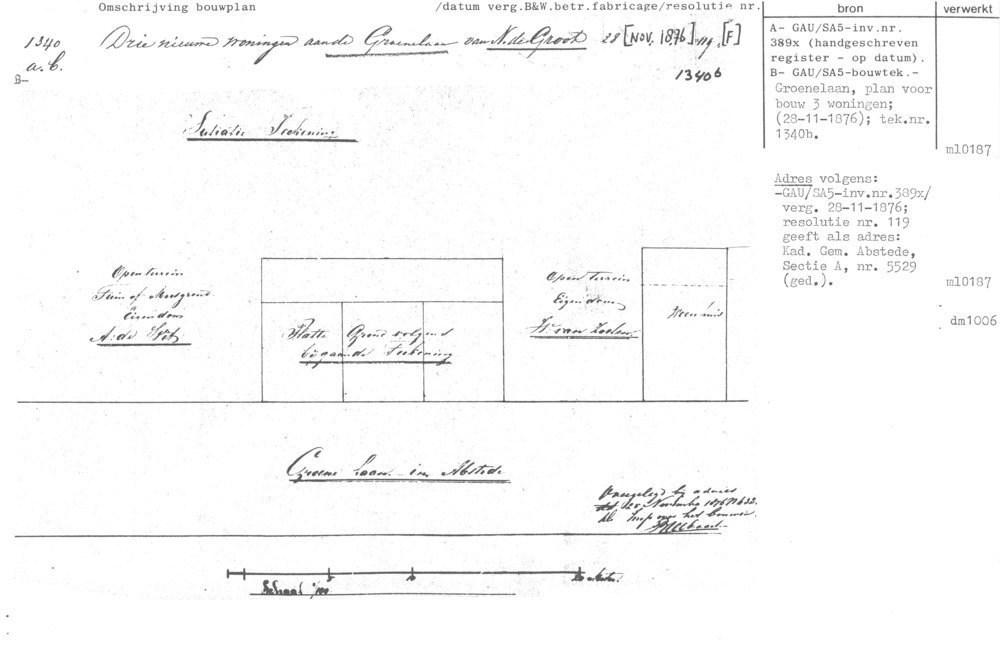 Omschrijving bouwplan /datum verg.B&W.betr.fabricage/resolutie nr. bron verwerkt
1340 Drie nieuwe woningen aan de Groenelaan van N. de Groot 28 [NOV. 1876] 119. [F]
a. b.
B-
1340b
A- GAU/SA5-inv.nr.
389x (handgeschreven
register - op datum).
B- GAU/SA5-bouwtek.-
Groenelaan, plan voor
bouw 3 woningen;
(28-11-1876); tek.nr.
1340b.
ml0187
Situatie Teekening
Adres volgens:
-GAU/SA5-inv.nr.389x/
verg. 28-11-1876;
resolutie nr. 119
geeft als adres:
Kad. Gem. Abstede,
Sectie A, nr. 5529
(ged.).
ml0187
dm1006
Open terrein
Tuin of Moesgrond
Eigendom
A: de Wit
Platte Grond volgens
bijgaande Teekening
Open terrein
Eigendom
W. van Zoelen
Woonhuis
Groene Laan in Abstede
Overgelegd bij advies
November 1876 N 632
het bouwen
5 10 20 Meter
Schaal 1/100